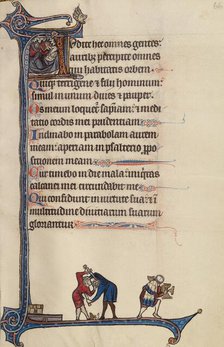 66
Audite hec omnes gentes:
auribus percipite omnes
qui habitatis orbem.
Quique terrigene & filii hominum:
simul in unum diues & pauper.
Os meum loquetur sapiam: & me
ditatio cordis mei prudentiam
Inclinabo in parabolam aurem
meam: aperiam in psalterio ppo
sitionem meam:
Cur timebo in die mala: iniquitas
calcanei mei circumdabit me
Qui confidunt in uirtute sua: & in
multitudine diuitiarum suarum
gloriantur.